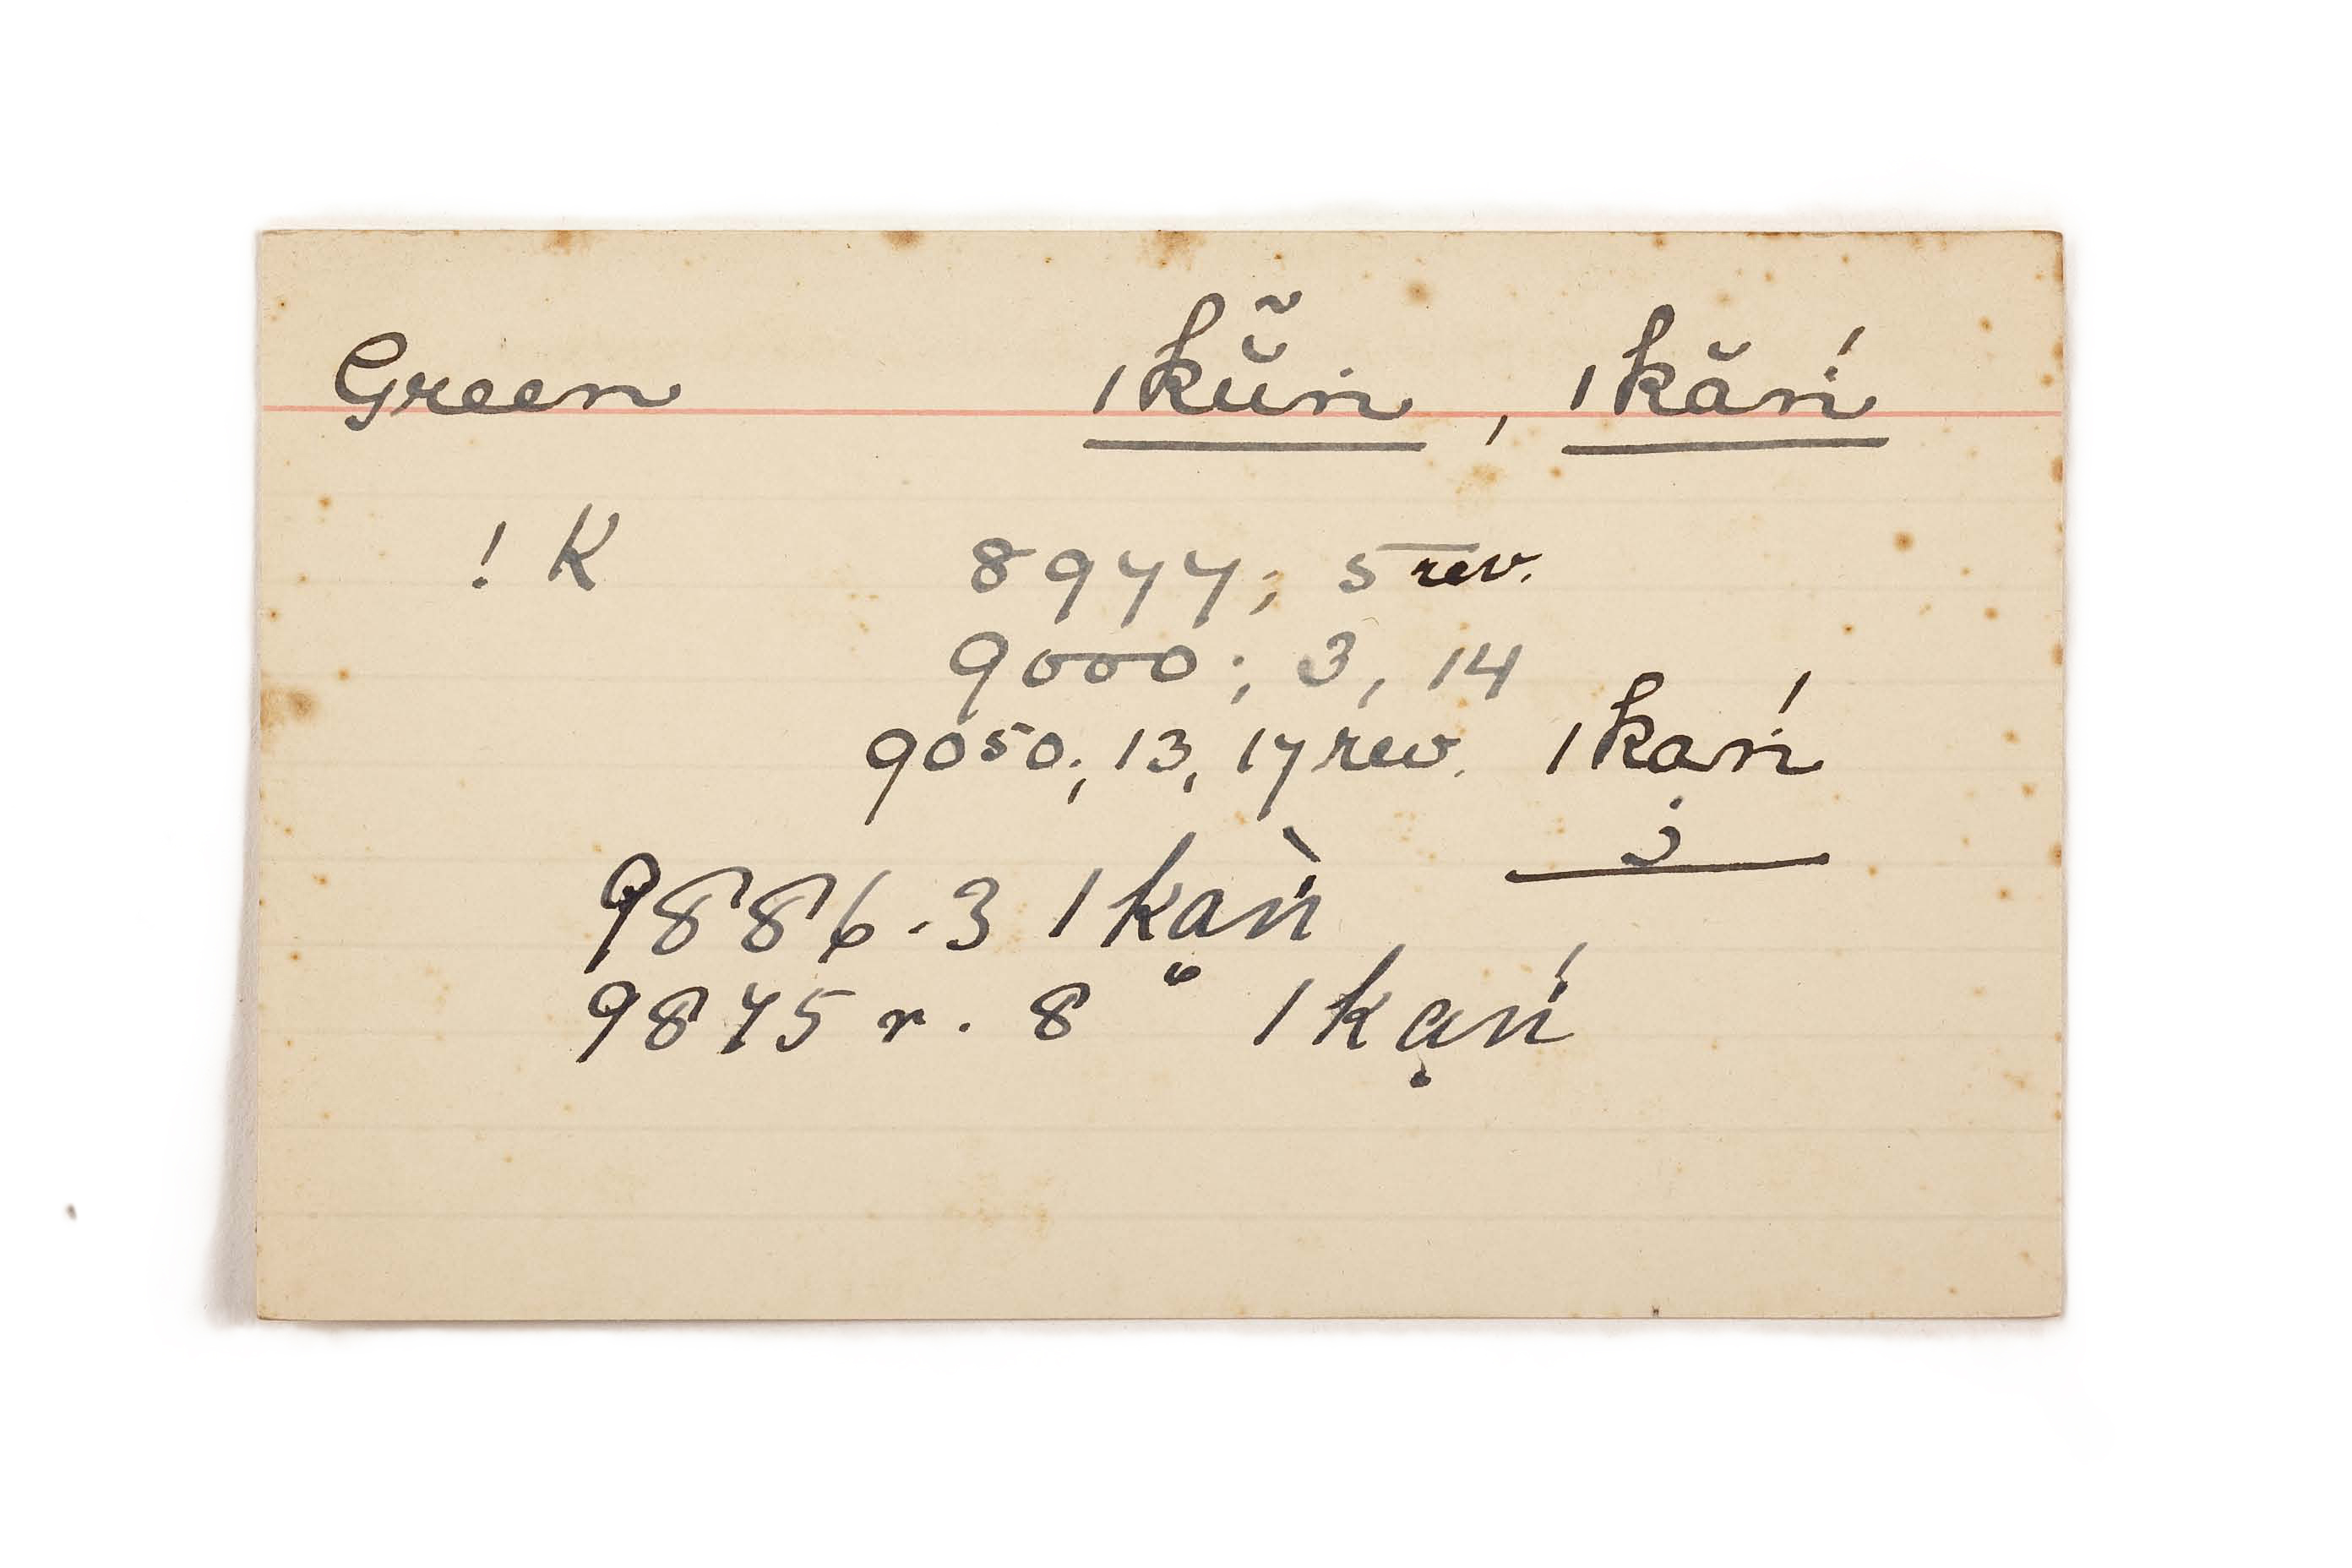 Green ǀkŭ̃ṅ, ǀkăṅ́
! K 8977; 5 rev.
9000; 3, 14
9050; 13, 17 rev. ǀkạṅ́
9886.3 ǀkąṅ̀
9875 r. 8 ǀkạṅ́